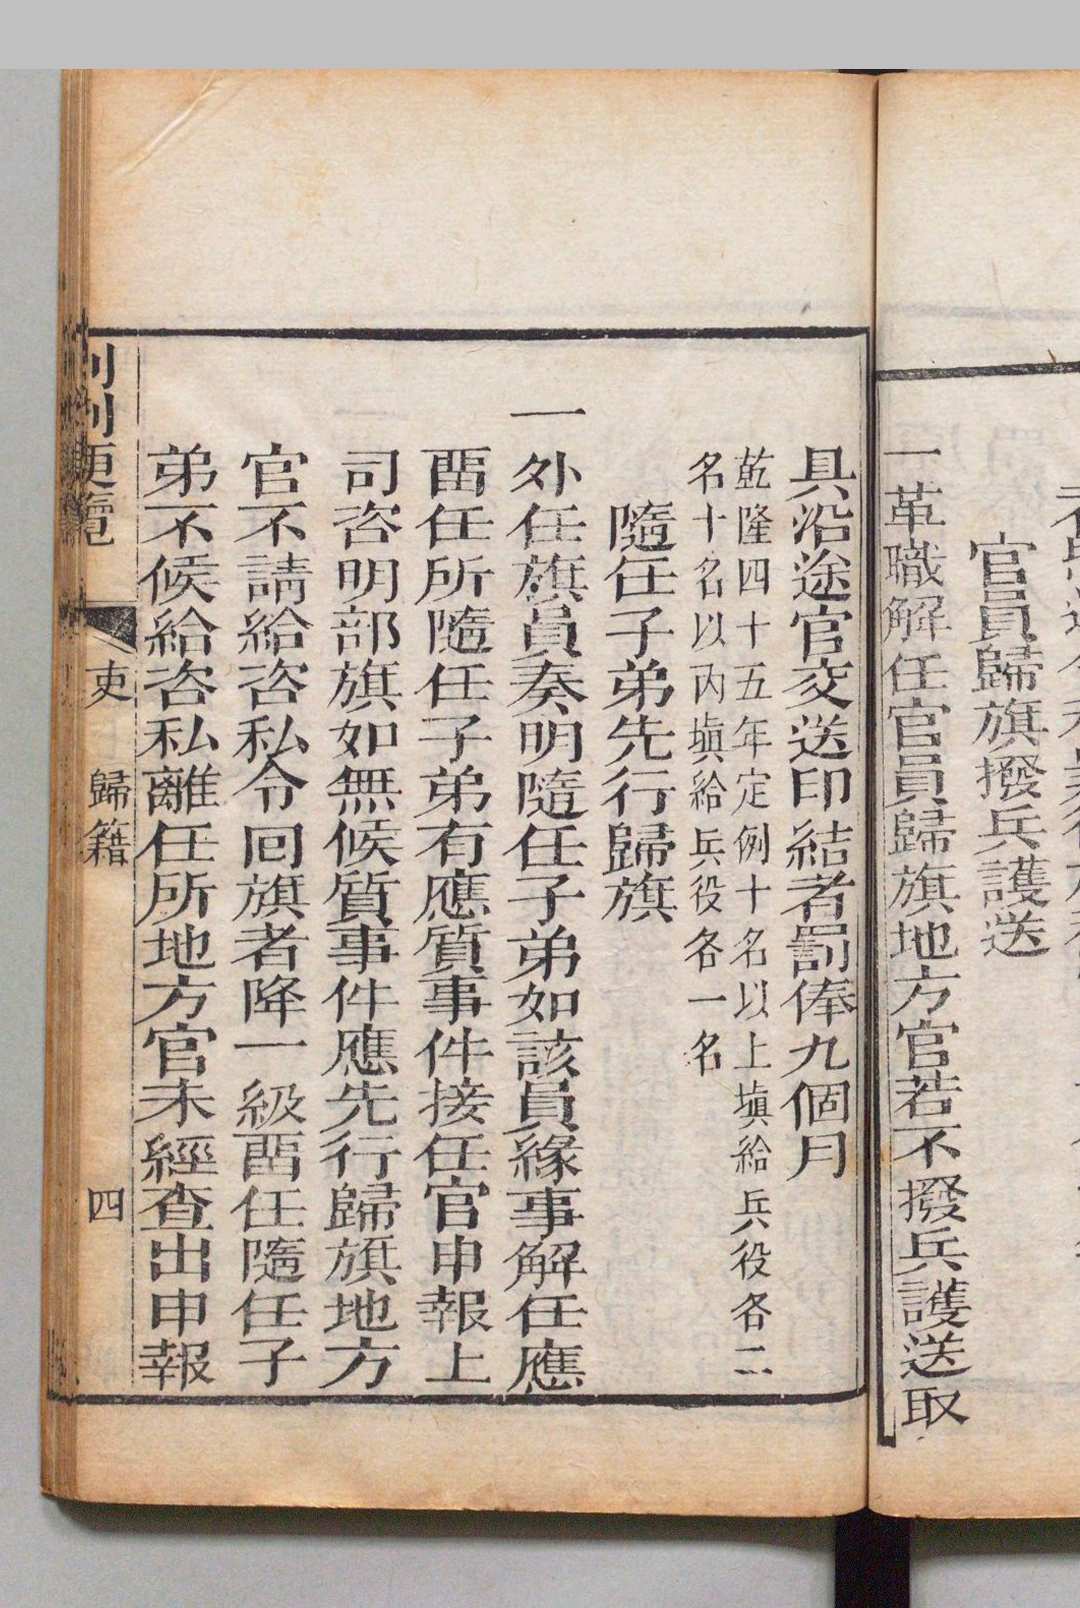 官員歸旗撥兵護送
一革職解任官員歸旗地方官若不撥兵護送取
具沿途官交送印結者罰俸九個月
乾隆四十五年定例十名以上塡給兵役各二
名十名以內塡給兵役各一名
隨任子弟先行歸旗
一外任旗員奏明隨任子弟如該員緣事解任應
畱任所隨任子弟有應質事件接任官申報上
司咨明部旗如無候質事件應先行歸旗地方
官不請給咨私令回旗者降一級畱任隨任子
弟不候給咨私離任所地方官未經查出申報
便覽 吏 歸籍 四